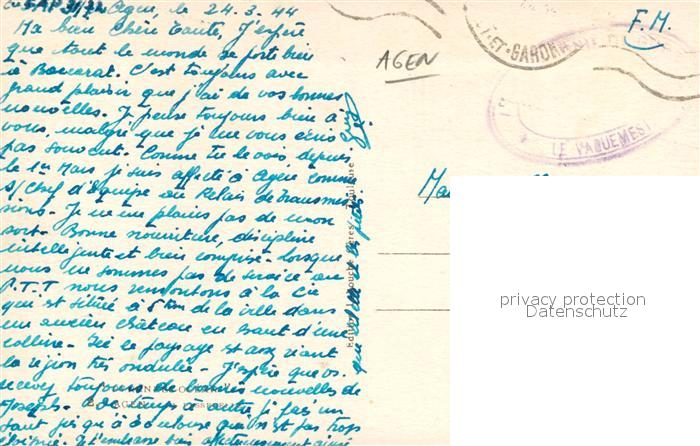 Agen, le 24.3.44
Ma bien Chère Tante, J'espère
que tout le monde se porte bien
à Baccarat. C'est toujours avec
grand plaisir que j'ai de vos bonnes
nouvelles. Je pense toujours bien à
vous, malgré que je ne vous écris
pas souvent. Comme tu le vois, depuis
le 1er Mars je suis affecté à Agen comme
S/Chef d'équipe au Relais de Transmis
sions. Je ne me plains pas de mon
sort. Bonne nourriture, discipline
intelligente et bien comprise. Lorsque
nous ne sommes pas de service au
P.T.T nous remontons à la Cie
qui est située à 5 km de la ville dans
un ancien château en haut d'une
colline. Ici le paysage est assez riant
la région très ondulée. J'espère que vs.
recevez toujours de bonnes nouvelles de
Joseph. De temps à autre je fais un
saut jusqu'à Toulouse qui n'est pas trop
éloignée. Je t'embrasse bien affectueusement ainsi
que
AGEN
F.M.
ET-GARONNE
LE VAGUEMEST
privacy protection
Datenschutz